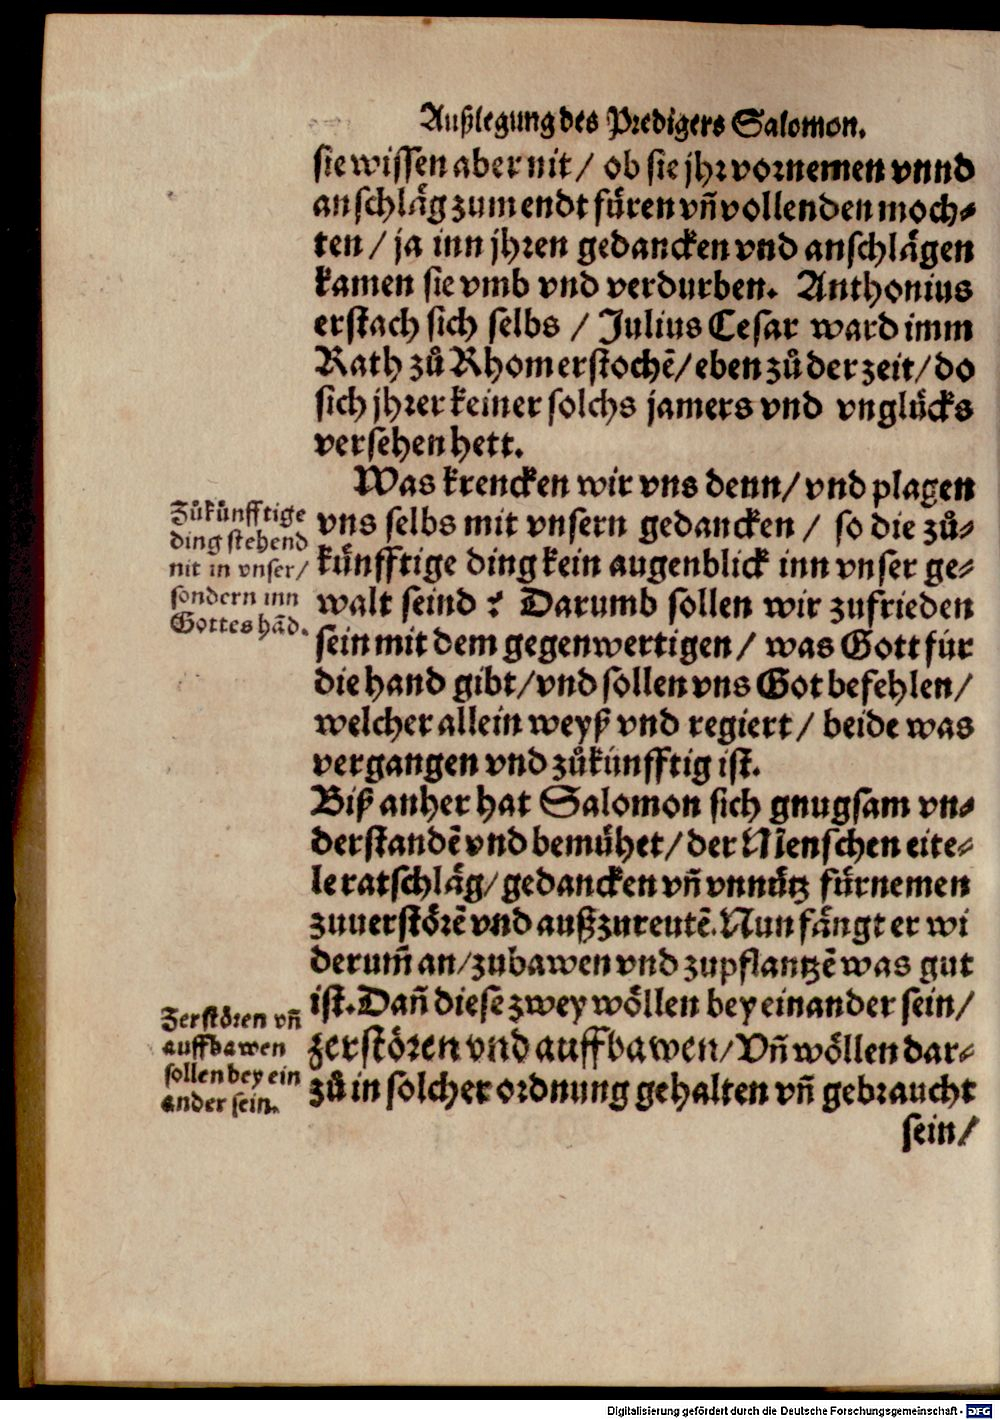 Außlegung des Predigers Salomon.
sie wissen aber nit / ob sie jhr vornemen vnnd
anschläg zum endt füren vñ vollenden moch-
ten / ja inn jhren gedancken vnd anschlägen
kamen sie vmb vnd verdurben. Anthonius
erstach sich selbs / Julius Cesar ward imm
Rath zů Rhom erstochẽ / eben zů der zeit / do
sich jhrer keiner solchs jamers vnd vnglücks
versehen hett.
Was krencken wir vns denn / vnd plagen
vns selbs mit vnsern gedancken / so die zů-
künfftige ding kein augenblick inn vnser ge-
walt seind ? Darumb sollen wir zufrieden
sein mit dem gegenwertigen / was Gott für
die hand gibt / vnd sollen vns Got befehlen /
welcher allein weyß vnd regiert / beide was
vergangen vnd zůkünfftig ist.
Zůkünfftige
ding stehend
nit in vnser /
sondern inn
Gottes hãd.
Biß anher hat Salomon sich gnugsam vn-
derstandẽ vnd bemühet / der Menschen eite-
le ratschläg / gedancken vñ vnnütz fürnemen
zuuerstörẽ vnd außzureutẽ. Nun fängt er wi
derum̃ an / zubawen vnd zupflantzẽ was gut
ist. Dañ diese zwey wöllen bey einander sein /
zerstören vnd auffbawen / Vñ wöllen dar-
zů in solcher ordnung gehalten vñ gebraucht
Zerstören vñ
auffbawen
sollen bey ein
ander sein.
sein /
Digitalisierung gefördert durch die Deutsche Forschungsgemeinschaft - DFG